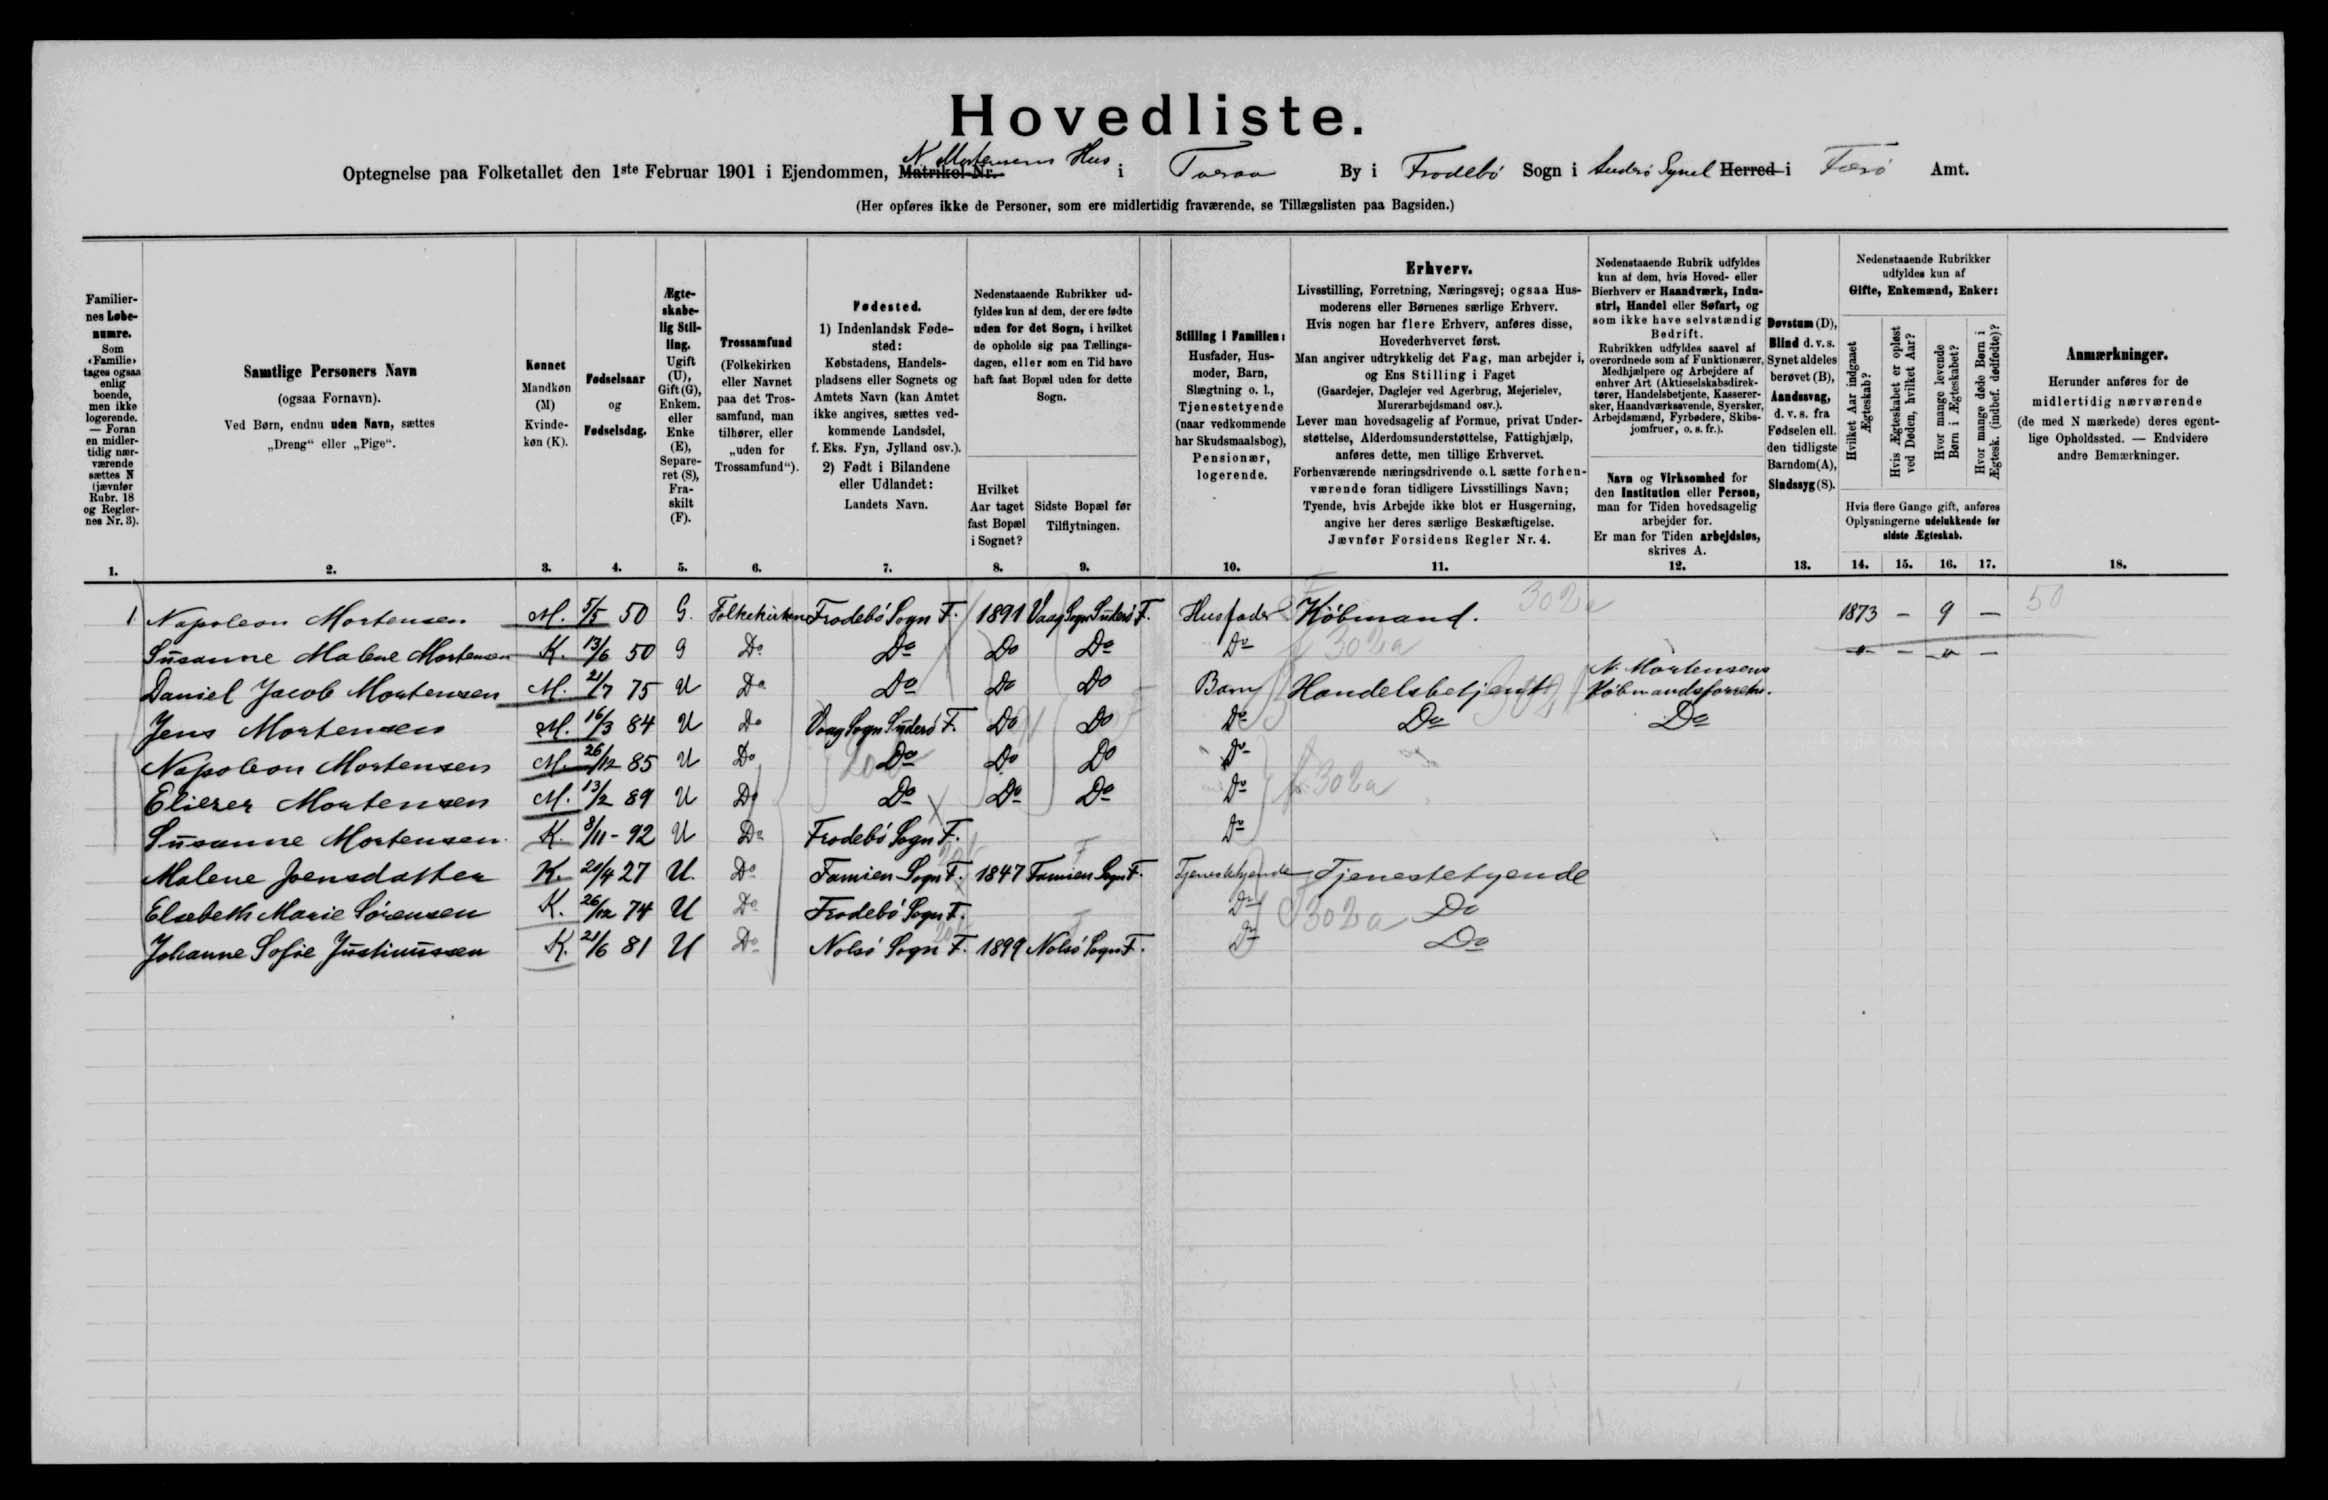 Hovedliste.
Optegnelse paa Folketallet den 1ste Februar 1901 i Ejendommen, Matrikel-Nr. N. Mortensens Hus i Tveraa By i Frodebö Sogn i Suderö Sysel Herred i Færö Amt.
(Her opføres ikke de Personer, som ere midlertidig fraværende, se Tillægslisten paa Bagsiden.)
Familiernes Løbenumre. Som «Familie» tages ogsaa enlig boende, men ikke logerende. — Foran en midlertidig nærværende sættes N (jævnfør Rubr. 18 og Reglernes Nr. 3).
Samtlige Personers Navn (ogsaa Fornavn). Ved Børn, endnu uden Navn, sættes „Dreng“ eller „Pige“.
Kønnet Mandkøn (M) Kvindekøn (K).
Fødselsaar og Fødselsdag.
Ægteskabelig Stilling. Ugift (U), Gift (G), Enkem. eller Enke (E), Separeret (S), Fraskilt (F).
Trossamfund (Folkekirken eller Navnet paa det Trossamfund, man tilhører, eller „uden for Trossamfund“).
Fødested. 1) Indenlandsk Fødested: Købstadens, Handelspladsens eller Sognets og Amtets Navn (kan Amtet ikke angives, sættes vedkommende Landsdel, f. Eks. Fyn, Jylland osv.). 2) Født i Bilandene eller Udlandet: Landets Navn.
Nedenstaaende Rubrikker udfyldes kun af dem, der ere fødte uden for det Sogn, i hvilket de opholde sig paa Tællingsdagen, eller som en Tid have haft fast Bopæl uden for dette Sogn.
Hvilket Aar taget fast Bopæl i Sognet?
Sidste Bopæl før Tilflytningen.
Stilling i Familien: Husfader, Husmoder, Barn, Slægtning o. l., Tjenestetyende (naar vedkommende har Skudsmaalsbog), Pensionær, logerende.
Erhverv.
Livsstilling, Forretning, Næringsvej; ogsaa Husmoderens eller Børnenes særlige Erhverv.
Hvis nogen har flere Erhverv, anføres disse, Hovederhvervet først.
Man angiver udtrykkelig det Fag, man arbejder i, og Ens Stilling i Faget
(Gaardejer, Daglejer ved Agerbrug, Mejerielev, Murerarbejdsmand osv.).
Lever man hovedsagelig af Formue, privat Understøttelse, Alderdomsunderstøttelse, Fattighjælp, anføres dette, men tillige Erhvervet.
Forhenværende næringsdrivende o. l. sætte forhenværende foran tidligere Livsstillings Navn;
Tyende, hvis Arbejde ikke blot er Husgerning, angive her deres særlige Beskæftigelse.
Jævnfør Forsidens Regler Nr. 4.
Nedenstaaende Rubrik udfyldes kun af dem, hvis Hoved- eller Bierhverv er Haandværk, Industri, Handel eller Søfart, og som ikke have selvstændig Bedrift.
Rubrikken udfyldes saavel af overordnede som af Funktionærer, Medhjælpere og Arbejdere af enhver Art (Aktieselskabsdirektører, Handelsbetjente, Kasserersker, Haandværkssvende, Syersker, Arbejdsmænd, Fyrbødere, Skibsjomfruer, o. s. fr.).
Navn og Virksomhed for den Institution eller Person, man for Tiden hovedsagelig arbejder for.
Er man for Tiden arbejdsløs, skrives A.
Døvstum (D), Blind d. v. s. Synet aldeles berøvet (B), Aandssvag, d. v. s. fra Fødselen ell. den tidligste Barndom (A), Sindssyg (S).
Nedenstaaende Rubrikker udfyldes kun af Gifte, Enkemænd, Enker:
Hvilket Aar indgaaet Ægteskab?
Hvis Ægteskabet er opløst ved Døden, hvilket Aar?
Hvor mange levende Børn i Ægteskabet?
Hvor mange døde Børn i Ægtesk. (indbef. dødfødte)?
Hvis flere Gange gift, anføres Oplysningerne udelukkende for sidste Ægteskab.
Anmærkninger.
Herunder anføres for de midlertidig nærværende (de med N mærkede) deres egentlige Opholdssted. — Endvidere andre Bemærkninger.
1. 2. 3. 4. 5. 6. 7. 8. 9. 10. 11. 12. 13. 14. 15. 16. 17. 18.
1 Napoleon Mortensen M. 5/5 50 G. Folkekirken Frodebö Sogn F. 1891 Vaag Sogn Suderö F. Husfader Köbmand. 302a 1873 – 9 – 50
Susanne Malene Mortensen K. 13/6 50 G Do Do Do Do Do f 302a " – " –
Daniel Jacob Mortensen M. 21/7 75 U Do Do Do Do Barn Handelsbetjent N. Mortensens Köbmandsforretn.
Jens Mortensen M. 16/3 84 U Do Vaag Sogn Suderö F. Do Do Do Do Do
Napoleon Mortensen M. 26/12 85 U Do Do Do Do Do
Eliezer Mortensen M. 13/2 89 U Do Do Do Do Do f 302a
Susanne Mortensen K. 8/11 - 92 U Do Frodebö Sogn F. Do
Malene Joensdatter K. 20/4 27 U. Do Famien Sogn F. 1847 Famien Sogn F. Tjenestetyende Tjenestetyende
Elsebeth Marie Sörensen K. 26/12 74 U Do Frodebö Sogn F. Do 302a Do
Johanne Sofie Justinussen K. 21/6 81 U Do Nolsö Sogn F. 1899 Nolsö Sogn F. Do Do